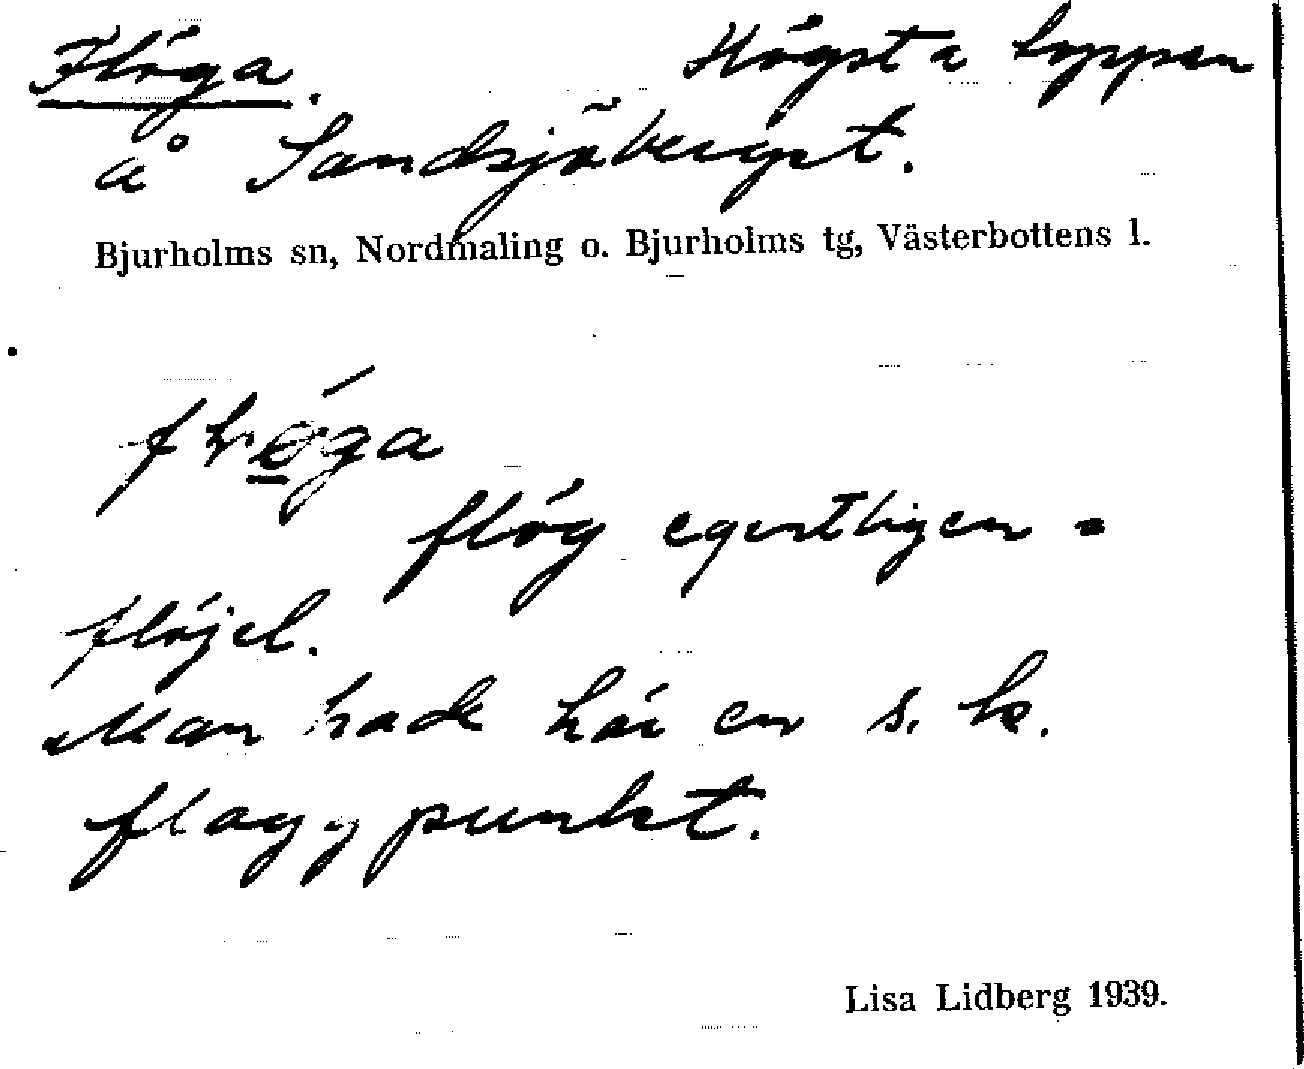 Flöga. Högsta toppen
å Sandsjöberget.
Bjurholms sn, Nordmaling o. Bjurholms tg, Västerbottens l.
flög egentligen =
flöjel.
Man hade här en s. k.
flaggpunkt.
Lisa Lidberg 1939.